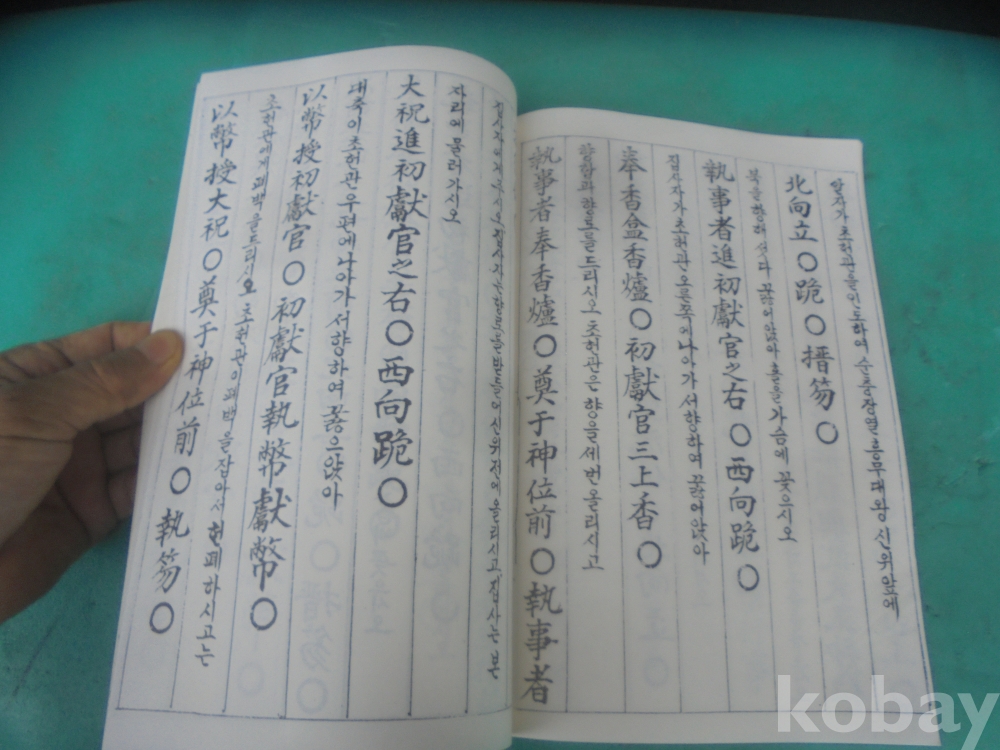 알자가 초헌관을 인도하여 순충장열흥무대왕 신위앞에
北向立〇跪〇搢笏〇
북을 향해 섰다 꿇어앉아 홀을 가슴에 꽂으시오
執事者進初獻官之右〇西向跪〇
집사자가 초헌관 오른쪽에 나아가 서향하여 꿇어앉아
奉香盒香爐〇初獻官三上香〇
향합과 향로를 드리시오 초헌관은 향을 세번 올리시고
執事者奉香爐〇奠于神位前〇執事者
집사자에게 주시오 집사자는 향로를 받들어 신위전에 올리시고 집사는 본
자리에 물러가시오
大祝進初獻官之右〇西向跪〇
대축이 초헌관 우편에 나아가 서향하여 꿇으앉아
以幣授初獻官〇初獻官執幣獻幣〇
초헌관에게 폐백을 드리시오 초헌관이 폐백을 잡아서 헌폐하시고는
以幣授大祝〇奠于神位前〇執笏〇
kobay